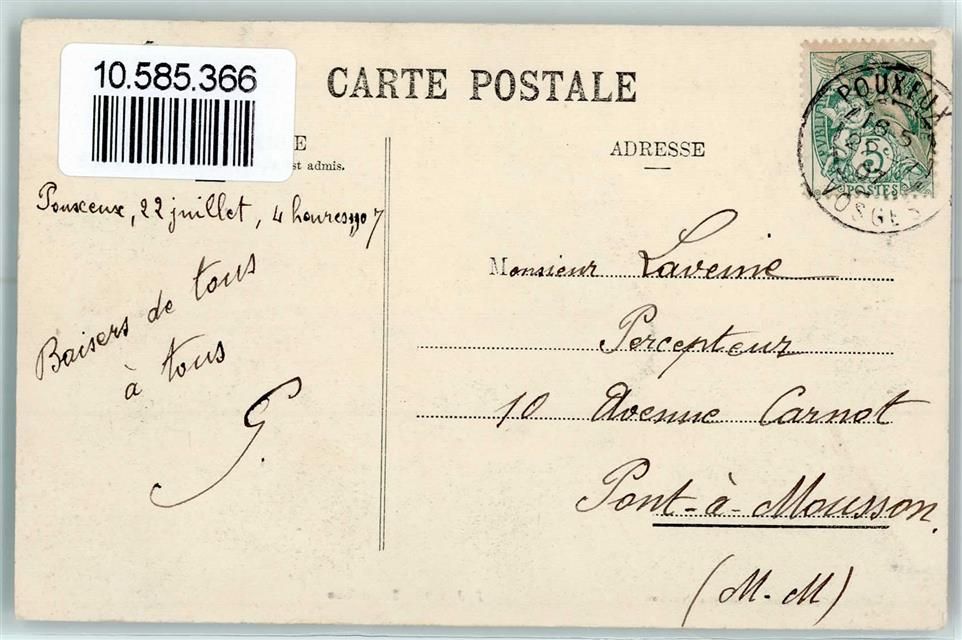 10.585.366
CARTE POSTALE
E
st admis.
ADRESSE
POUXEUX
VOSGES
5
POSTES
Pouxeux, 22 juillet, 4 heures, 1907
Baisers de tous
à tous
G.
Monsieur Laveine
Percepteur
10 Avenue Carnot
Pont-à-Mousson.
(M.-M)